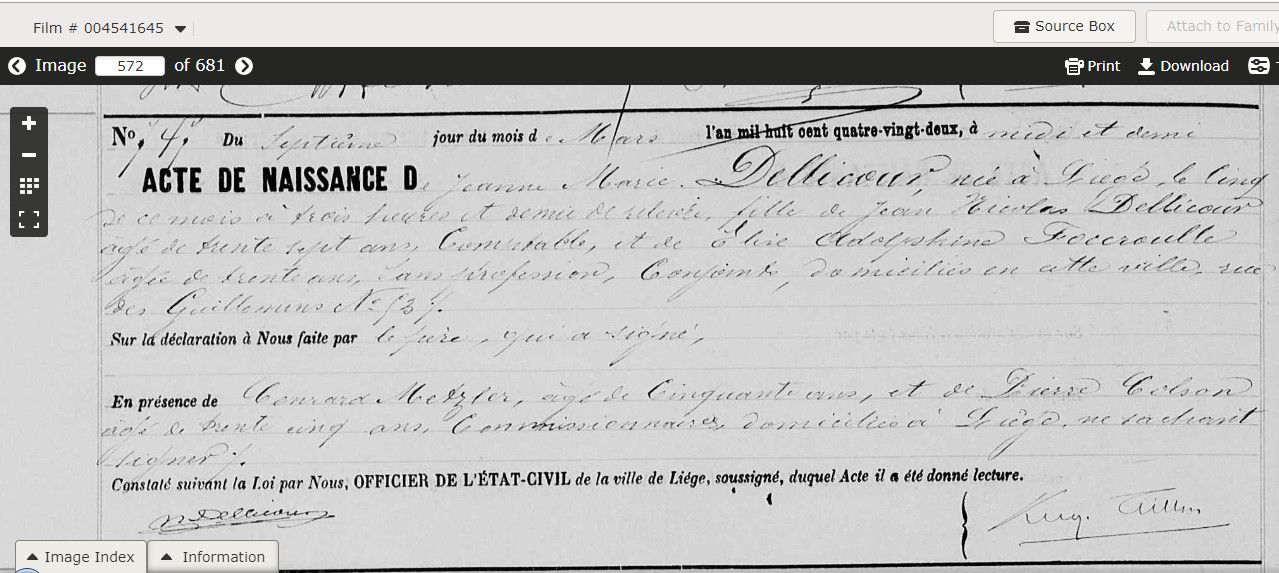 Film # 004541645
Source Box
Attach to Family
Image 572 of 681
Print
Download
No Du Septième jour du mois de Mars l'an mil huit cent quatre-vingt-deux, à midi et demi
ACTE DE NAISSANCE De Jeanne Marie Dellicour, née à Liége, le Cinq
de ce mois à trois heures et demie de relevée, fille de Jean Nicolas Dellicour
âgé de trente sept ans, Comptable, et de Elise Adolphine Foccroulle
âgée de trente ans, sans profession, Conjoints, domiciliés en cette ville, rue
des Guillemins No
Sur la déclaration à Nous faite par le père, qui a signé,
En présence de Conrard Metzler, âgé de Cinquante ans, et de Pierre Colson
âgé de trente cinq ans, Commissionnaires, domiciliés à Liége, ne sachant
signer
Constaté suivant la Loi par Nous, OFFICIER DE L'ÉTAT-CIVIL de la ville de Liége, soussigné, duquel Acte il a été donné lecture.
NDellicour
Image Index
Information